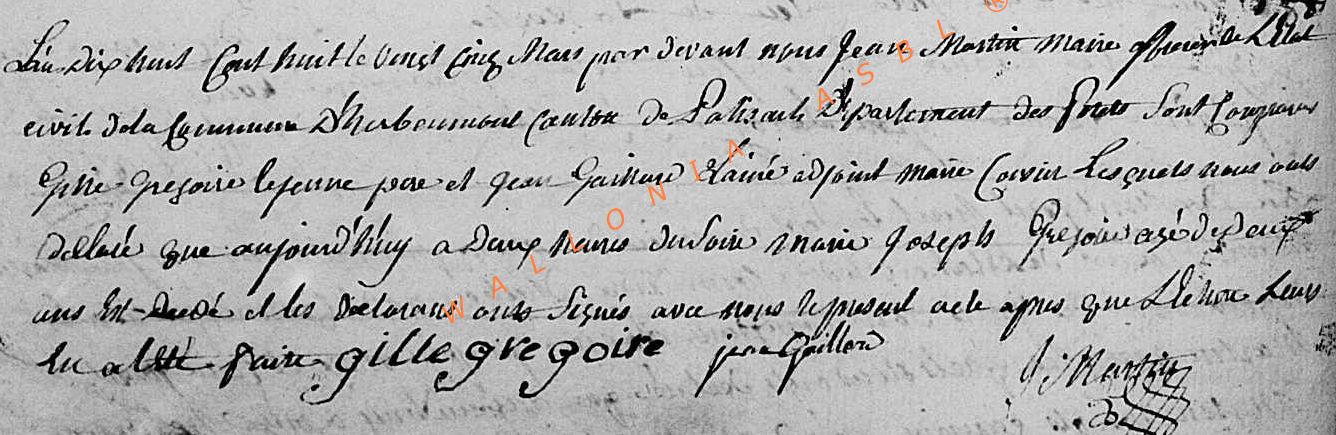 L'an dix huit Cent huit le vingt cinq Mars par devant nous Jean Martin Maire officier de L'Etat
civile de la Commune D'herbeumont Canton de Paliseul Département des forets Sont Comparus
Gille Gregoire le jeune pere et jean Gaillard L'ainé adjoint maire Lesquels nous onts
declaré que aujourd'huy a Deux heures du Soire marie Joseph Gregoire agé de deux
ans Est decedé et les declarans onts Signés avec nous le present acte apres que Lecture Leurs
En a Eté faite gille gregoire jean Gaillard
J: Martin
WALLONIA ASBL ®